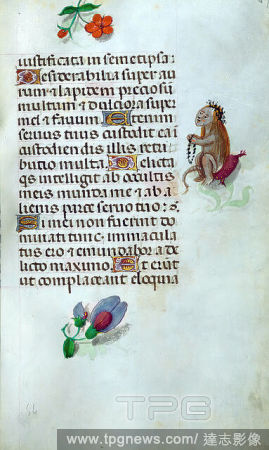 iustificata in semetipsa:
Desiderabilia super au
rum & lapidem preciosu
multum & dulciora super
mel & fauum Etenim
seruus tuus custodit ea i
custodiendis illis retri
butio multa Delicta
quis intelligit ab ocultis
meis munda me & ab a
lienis parce seruo tuo: s
Si mei non fuerint do
minati tunc immacula
tus ero & emundabor a de
licto maximo Et erut
ut complaceant eloquia
TPG
www.tpgnews.com/達志影像